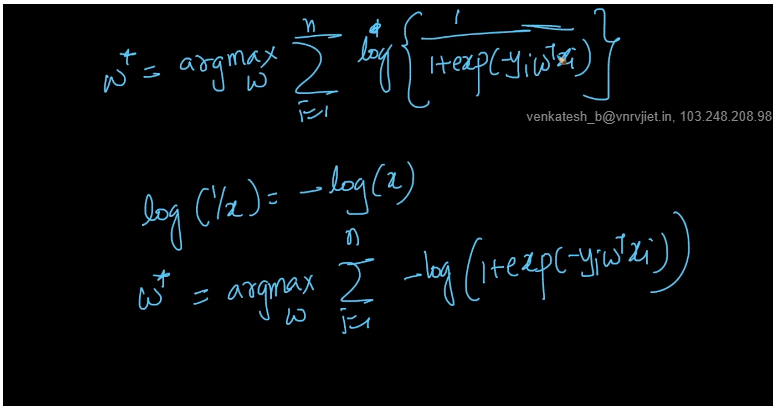 w* = argmax_w Σ_{i=1}^{n} log { 1 / (1+exp(-y_i w^T x_i)) }
venkatesh_b@vnrvjiet.in, 103.248.208.98
log (1/x) = -log(x)
w* = argmax_w Σ_{i=1}^{n} -log (1+exp(-y_i w^T x_i))